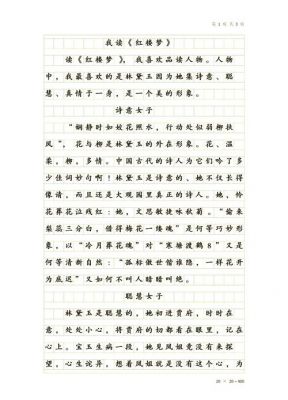 第 1 页 共 3 页
我读《红楼梦》
读《红楼梦》，我喜欢品读人物。人物
中，我最喜欢的是林黛玉因为她集诗意、聪
慧、真情于一身，是一个美的形象。
诗意女子
“娴静时如姣花照水，行动处似弱柳扶
风”，花与柳是林黛玉的外在形象。花、温
柔，柳，多情。中国古代的诗人为它们吟了多
少佳词妙句啊！林黛玉是诗意的、她不仅长得
像诗，而且还是大观园里真正的诗人。她，伶
花葬花泣残红；她，文思敏捷咏秋菊。“偷来
梨蕊三分白，借得梅花一缕魂”是何等巧妙形
象，以“冷月葬花魂”对“寒塘渡鹤8”又是
何等清新自然；“孤标傲世偕谁隐，一样花开
为底迟”又如何不叫人暗暗叫绝。
聪慧女子
林黛玉是聪慧的，她初进贾府，时时在
意，处处小心，将贾府的切都看在眼里，记在
心上。宝玉生病一段，她见凤姐竟没有来探
望，心生诧异，想着凤姐就是没有这个心，为
20 × 20 =400